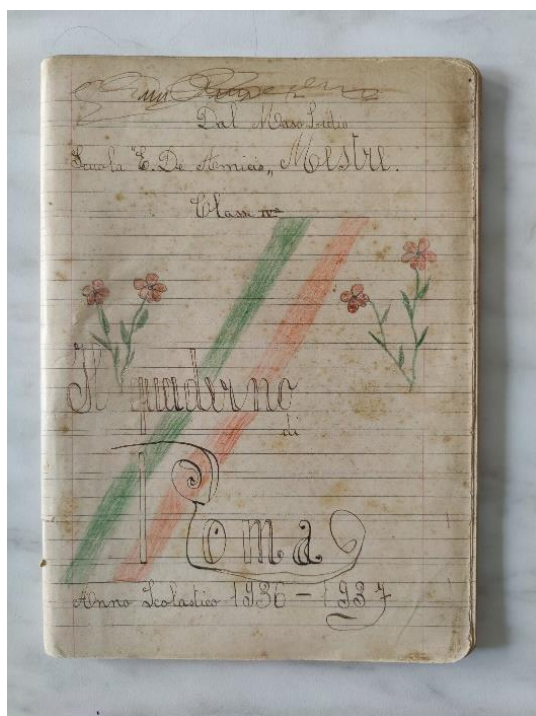 Dal Maso Lidio
Scuola "E. De Amicis„ Mestre.
Classe IVª
Il quaderno
di
Roma
Anno Scolastico 1936-1937